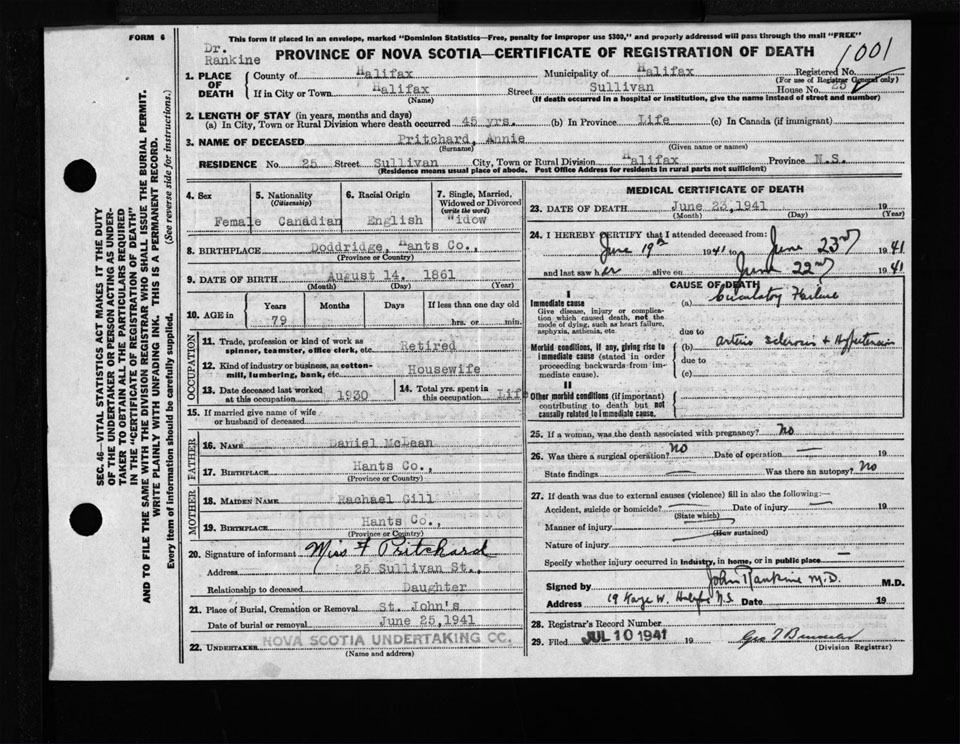 FORM 6
This form if placed in an envelope, marked "Dominion Statistics—Free, penalty for improper use $300," and properly addressed will pass through the mail "FREE"
Dr.
Rankine
PROVINCE OF NOVA SCOTIA—CERTIFICATE OF REGISTRATION OF DEATH
1001
1. PLACE OF DEATH
County of Halifax Municipality of Halifax Registered No.
(For use of Registrar General only)
If in City or Town Halifax Street Sullivan House No. 25
(Name) (If death occurred in a hospital or institution, give the name instead of street and number)
2. LENGTH OF STAY (in years, months and days)
(a) In City, Town or Rural Division where death occurred 45 yrs. (b) In Province Life (c) In Canada (if immigrant)
3. NAME OF DECEASED Pritchard, Annie
(Surname) (Given name or names)
RESIDENCE No. 25 Street Sullivan City, Town or Rural Division Halifax Province N.S.
(Residence means usual place of abode. Post Office Address for residents in rural parts not sufficient)
4. Sex 5. Nationality (Citizenship) 6. Racial Origin 7. Single, Married, Widowed or Divorced (write the word)
Female Canadian English "idow
8. BIRTHPLACE Doddridge, Hants Co.,
(Province or Country)
9. DATE OF BIRTH August 14, 1861
(Month) (Day) (Year)
10. AGE in Years Months Days If less than one day old
79 hrs. or min.
OCCUPATION
11. Trade, profession or kind of work as spinner, teamster, office clerk, etc. Retired
12. Kind of industry or business, as cotton-mill, lumbering, bank, etc. Housewife
13. Date deceased last worked at this occupation 1930 14. Total yrs. spent in this occupation Life
15. If married give name of wife or husband of deceased
FATHER
16. NAME Daniel McLean
17. BIRTHPLACE Hants Co.,
(Province or Country)
MOTHER
18. MAIDEN NAME Rachael Gill
19. BIRTHPLACE Hants Co.,
(Province or Country)
20. Signature of informant Miss F Pritchard
Address 25 Sullivan St.,
Relationship to deceased Daughter
21. Place of Burial, Cremation or Removal St. John's
Date of burial or removal June 25,1941
22. UNDERTAKER NOVA SCOTIA UNDERTAKING CC.
(Name and address)
MEDICAL CERTIFICATE OF DEATH
23. DATE OF DEATH June 23,1941 19
(Month) (Day) (Year)
24. I HEREBY CERTIFY that I attended deceased from:
June 19th 1941 to June 23rd 1941
and last saw her alive on June 22nd 1941
CAUSE OF DEATH
I
Immediate cause (a) Circulatory Failure
Give disease, injury or complication which caused death, not the mode of dying, such as heart failure, asphyxia, asthenia, etc.
due to
Morbid conditions, if any, giving rise to immediate cause (stated in order proceeding backwards from immediate cause).
(b) arterio sclerosis + Hypertension
due to
(c)
II
Other morbid conditions (if important) contributing to death but not causally related to immediate cause.
25. If a woman, was the death associated with pregnancy? No
26. Was there a surgical operation? No Date of operation —
State findings — Was there an autopsy? No
27. If death was due to external causes (violence) fill in also the following:—
Accident, suicide or homicide? Date of injury — 19
(State which)
Manner of injury
(How sustained)
Nature of injury
Specify whether injury occurred in industry, in home, or in public place —
Signed by John Rankine M.D. M.D.
Address 19 Kaye W. Halifax N.S. Date 19
28. Registrar's Record Number
29. Filed JUL 10 1941 19
(Division Registrar)
SEC. 46—VITAL STATISTICS ACT MAKES IT THE DUTY
OF THE UNDERTAKER OR PERSON ACTING AS UNDER-
TAKER TO OBTAIN ALL THE PARTICULARS REQUIRED
IN THE "CERTIFICATE OF REGISTRATION OF DEATH"
AND TO FILE THE SAME WITH THE DIVISION REGISTRAR WHO SHALL ISSUE THE BURIAL PERMIT.
WRITE PLAINLY WITH UNFADING INK. THIS IS A PERMANENT RECORD.
Every item of information should be carefully supplied. (See reverse side for instructions.)